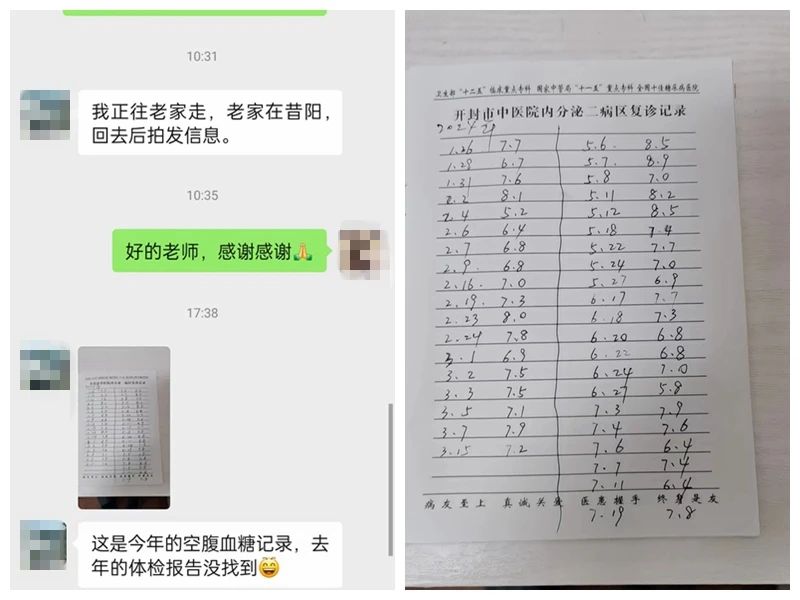 10:31
我正往老家走，老家在昔阳，
回去后拍发信息。
10:35
好的老师，感谢感谢🙏
17:38
这是今年的空腹血糖记录，去
年的体检报告没找到😄
卫生部“十二五”临床重点专科 国家中管局“十一五”重点专科 全国十佳糖尿病医院
开封市中医院内分泌二病区复诊记录
1.26 7.7 5.6. 8.5
1.29 6.7 5.7. 8.9
1.31 7.6 5.8 7.0
2.2 8.1 5.11 8.2
2.4 5.2 5.12 8.5
2.6 6.4 5.18 7.4
2.7 6.8 5.22 7.7
2.9. 6.8 5.24 7.0
2.16. 7.0 5.27 6.9
2.19. 7.3 6.17 7.7
2.23 8.0 6.18 7.3
2.24 7.8 6.20 6.8
3.1 6.9 6.22 6.8
3.2 7.5 6.24 7.0
3.3 7.5 6.27 5.8
3.5 7.1 7.3 7.9
3.7 7.9 7.4 7.6
3.15 7.2 7.6 6.4
7.7 7.4
7.11 6.4
病友至上 真诚关爱 医患携手 终身是友
7.19 7.8